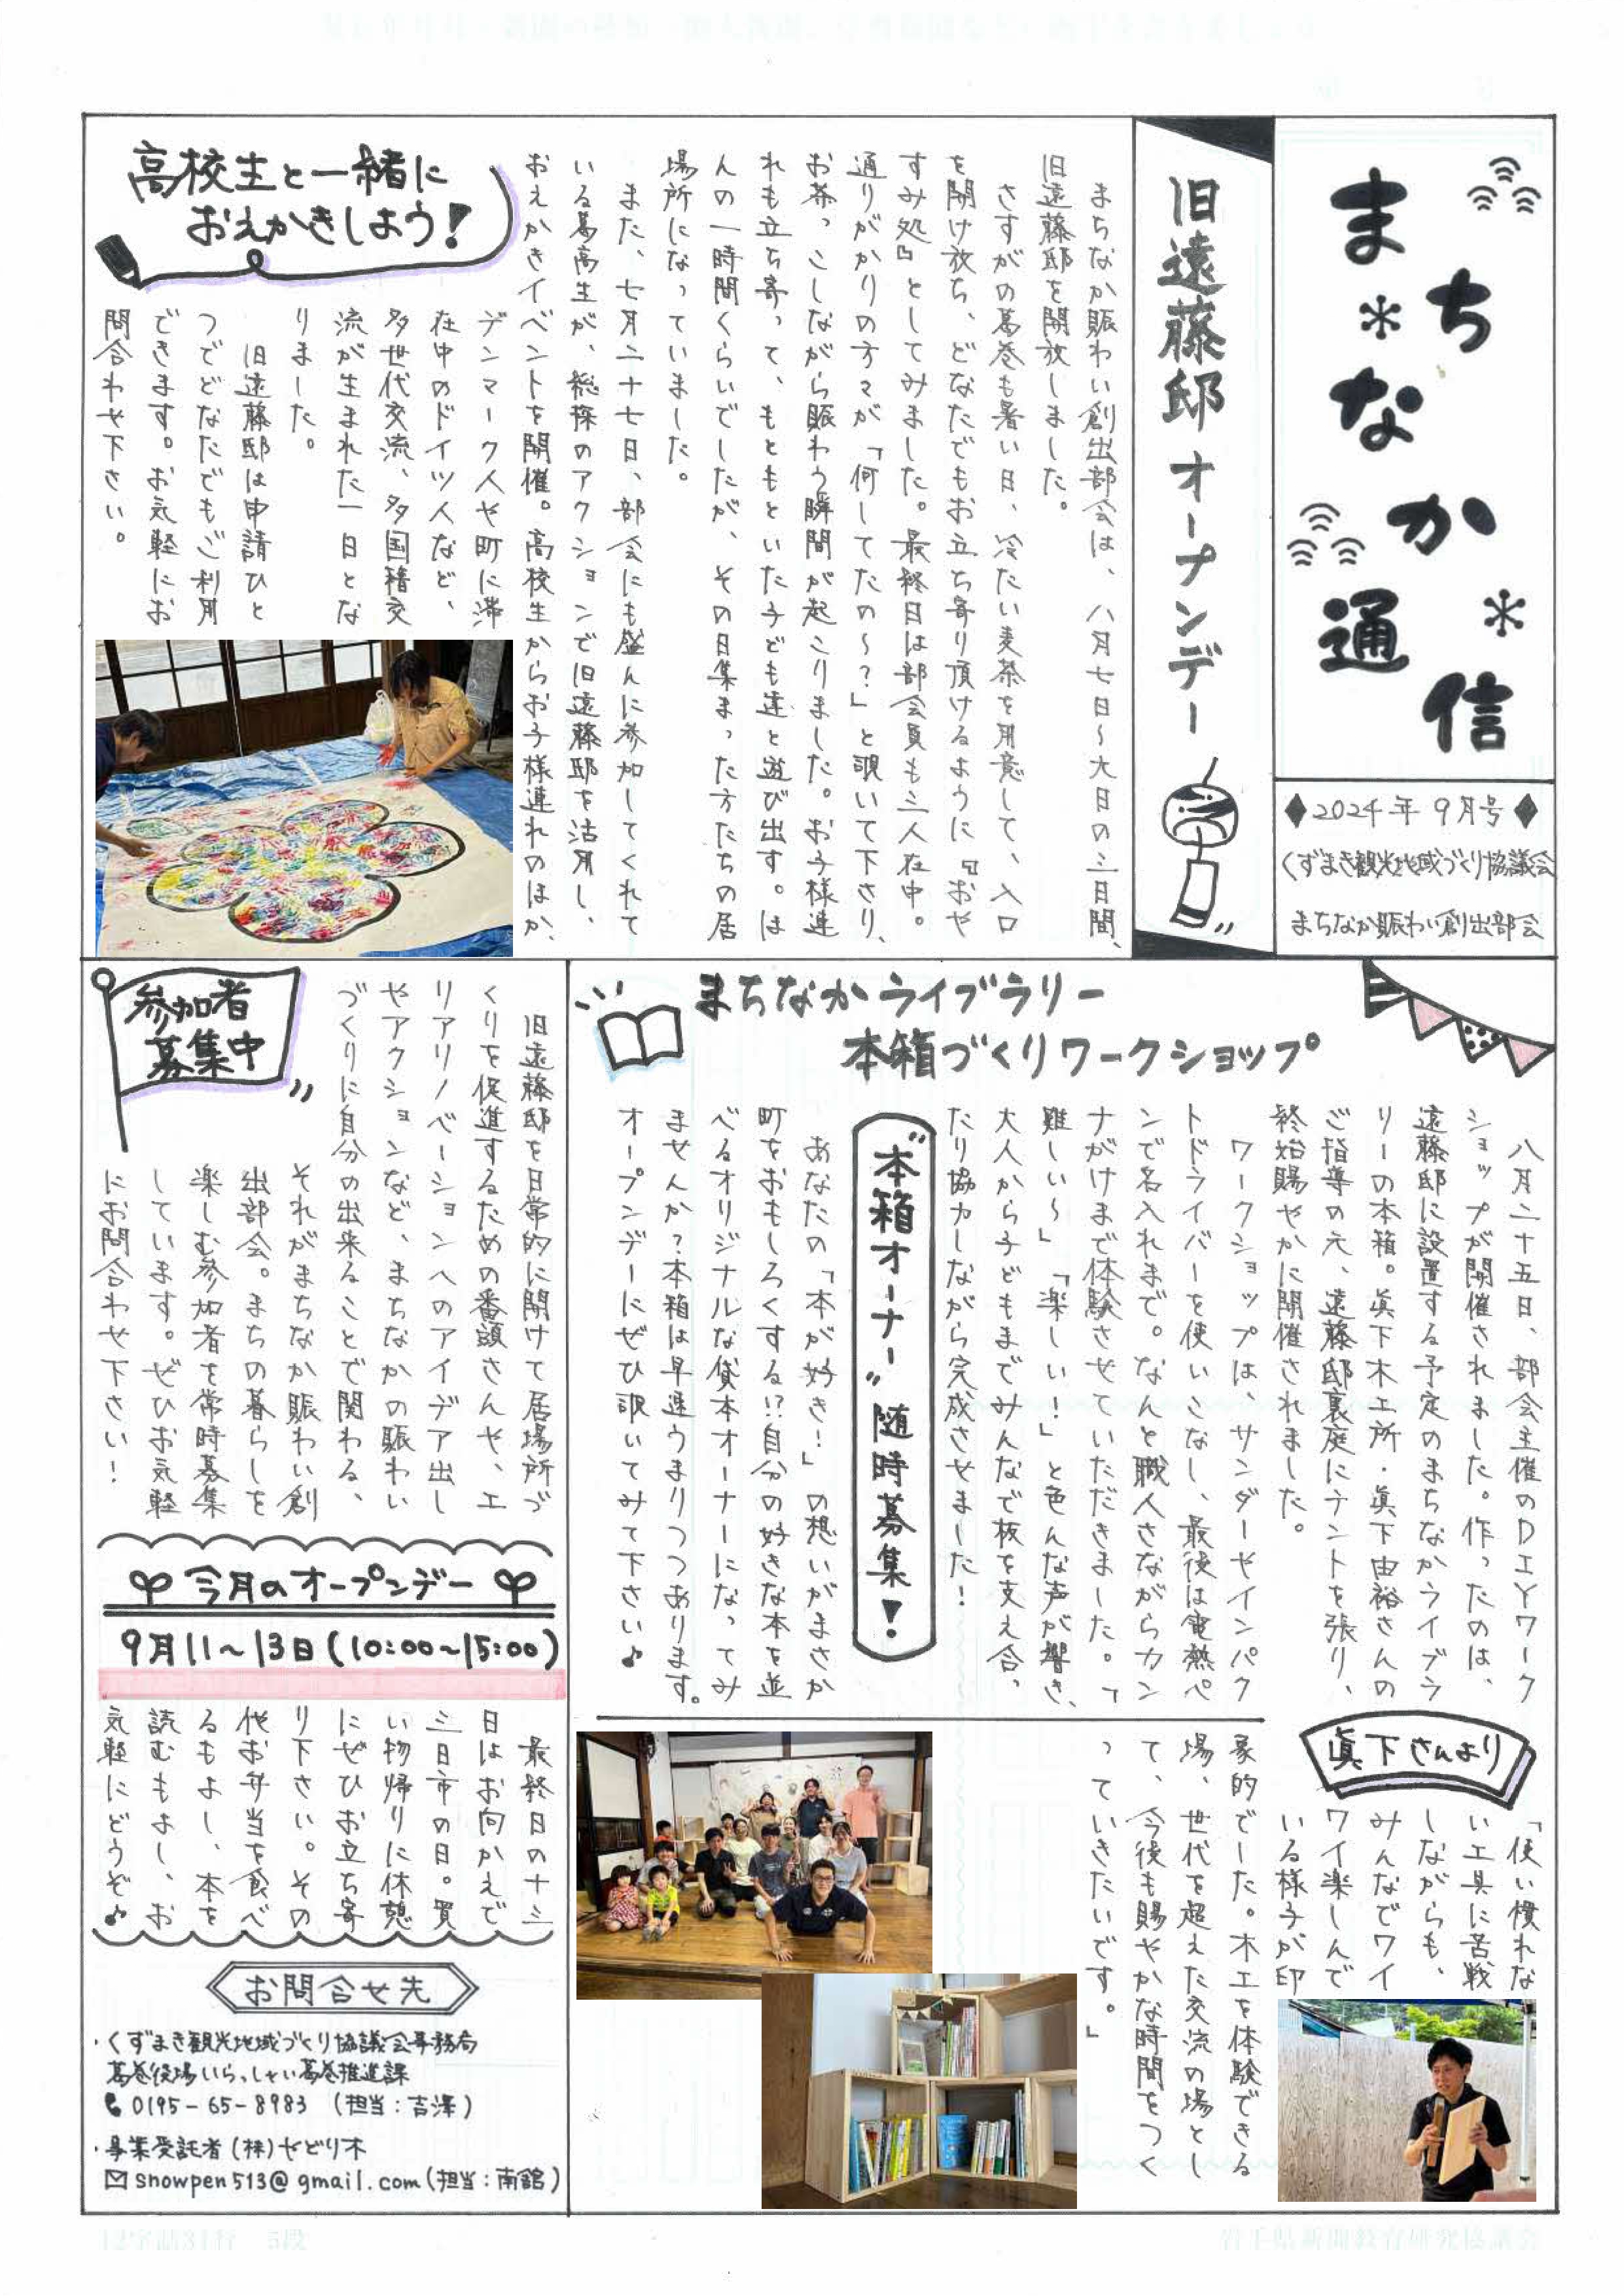 まちなか通信
◆2024年9月号◆
くずまき観光地域づくり協議会
まちなか賑わい創出部会
旧遠藤邸オープンデー
まちなか賑わい創出部会は、八月七日〜大日の三日間、
旧遠藤邸を開放しました。
さすがの葛巻も暑い日、冷たい麦茶を用意して、入口
を開け放ち、どなたでもお立ち寄り頂けるように『おや
すみ処』としてみました。最終日は部会員も三人在中。
通りがかりの方々が「何してたの〜?」と覗いて下さり、
お茶っこしながら賑わう瞬間が起こりました。お子様連
れも立ち寄って、もともといた子ども達と遊び出す。ほ
んの一時間くらいでしたが、その日集まった方たちの居
場所になっていました。
また、七月二十七日、部会にも盛んに参加してくれて
いる葛高生が、総探のアクションで旧遠藤邸を活用し、
おえかきイベントを開催。高校生からお子様連れのほか、
高校生と一緒に
おえかきしよう!
デンマーク人や町に滞
在中のドイツ人など、
多世代交流、多国籍交
流が生まれた一日とな
りました。
旧遠藤邸は申請ひと
つでどなたでもご利用
できます。お気軽にお
問合わせ下さい。
まちなかライブラリー
本箱づくりワークショップ
八月二十五日、部会主催のDIYワーク
ショップが開催されました。作ったのは、
遠藤邸に設置する予定のまちなかライブラ
リーの本箱。眞下木工所・眞下由裕さんの
ご指導の元、遠藤邸裏庭にテントを張り、
終始賑やかに開催されました。
ワークショップは、サンダーやインパク
トドライバーを使いこなし、最後は電熱ペ
ンで名入れまで。なんと職人さながらカン
ナがけまで体験させていただきました。「
難しい〜」「楽しい!」と色んな声が響き、
大人から子どもまでみんなで板を支え合っ
たり協力しながら完成させました!
"本箱オーナー"随時募集!
あなたの「本が好き!」の想いがまさか
町をおもしろくする!?自分の好きな本を並
べるオリジナルな貸本オーナーになってみ
ませんか?本箱は早速うまりつつあります。
オープンデーにぜひ覗いてみて下さい♪
眞下さんより
「使い慣れな
い工具に苦戦
しながらも、
みんなでワイ
ワイ楽しんで
いる様子が印
象的でした。木工を体験できる
場、世代を超えた交流の場とし
て、今後も賑やかな時間をつく
っていきたいです。」
参加者
募集中
旧遠藤邸を日常的に開けて居場所づ
くりを促進するための番頭さんや、エ
リアリノベーションへのアイデア出し
やアクションなど、まちなかの賑わい
づくりに自分の出来ることで関わる、
それがまちなか賑わい創
出部会。まちの暮らしを
楽しむ参加者を常時募集
しています。ぜひお気軽
にお問合わせ下さい!
今月のオープンデー
9月11〜13日(10:00〜15:00)
最終日の十三
日はお向かえで
三日市の日。買
い物帰りに休憩
にぜひお立ち寄
り下さい。その
他お弁当を食べ
るもよし、本を
読むもよし、お
気軽にどうぞ♪
お問合せ先
・くずまき観光地域づくり協議会事務局
葛巻役場いらっしゃい葛巻推進課
0195-65-8983 (担当:吉澤)
・事業受託者(株)やどり木
snowpen513@gmail.com(担当:南舘)
12字詰31行 5段
岩手県新聞教育研究協議会